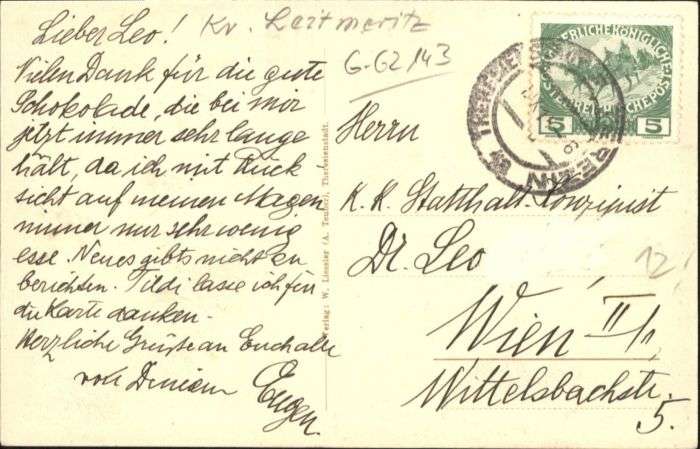 Lieber Leo!
Vielen Dank für die gute
Schokolade, die bei mir
jetzt immer sehr lange
hält, da ich mit Rück
sicht auf meinen Magen
immer nur sehr wenig
esse. Neues gibts nicht zu
berichten. Tildi lasse ich für
die Karte danken.
Herzliche Grüsse an Euch alle
von Deinem
Eugen.
Kr. Leitmeritz
G-G2/43
Verlag: W. (A. Teuber), Theresienstadt.
KAISERLICHE KÖNIGLICHE
ÖSTERREICHISCHE POST
5 5
THERESIEN
Herrn
K. K. Statthalt. Konzipist
Dr. Leo
Wien II/1
Wittelsbachstr.
5.
12!